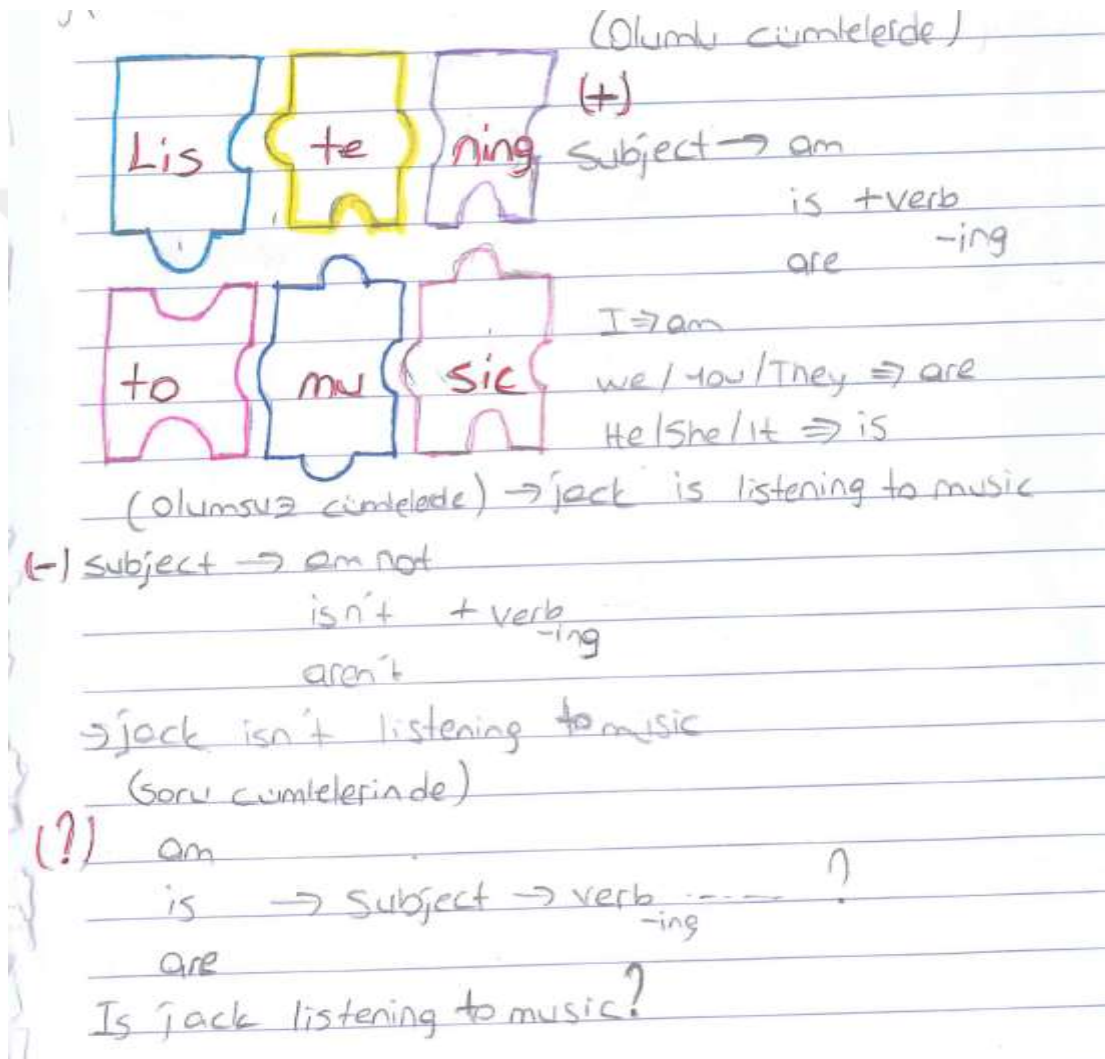 (Olumlu cümlelerde)
Lis te ning
(+)
Subject → am
is +verb
-ing
are
to mu sic
I ⇒ am
we/you/They ⇒ are
He/She/It ⇒ is
(Olumsuz cümlelede) → jack is listening to music
(-) subject → am not
isn't + verb
-ing
aren't
→ jack isn't listening to music
(soru cümlelerinde)
(?) am
is → subject → verb ----- ?
-ing
are
Is jack listening to music?